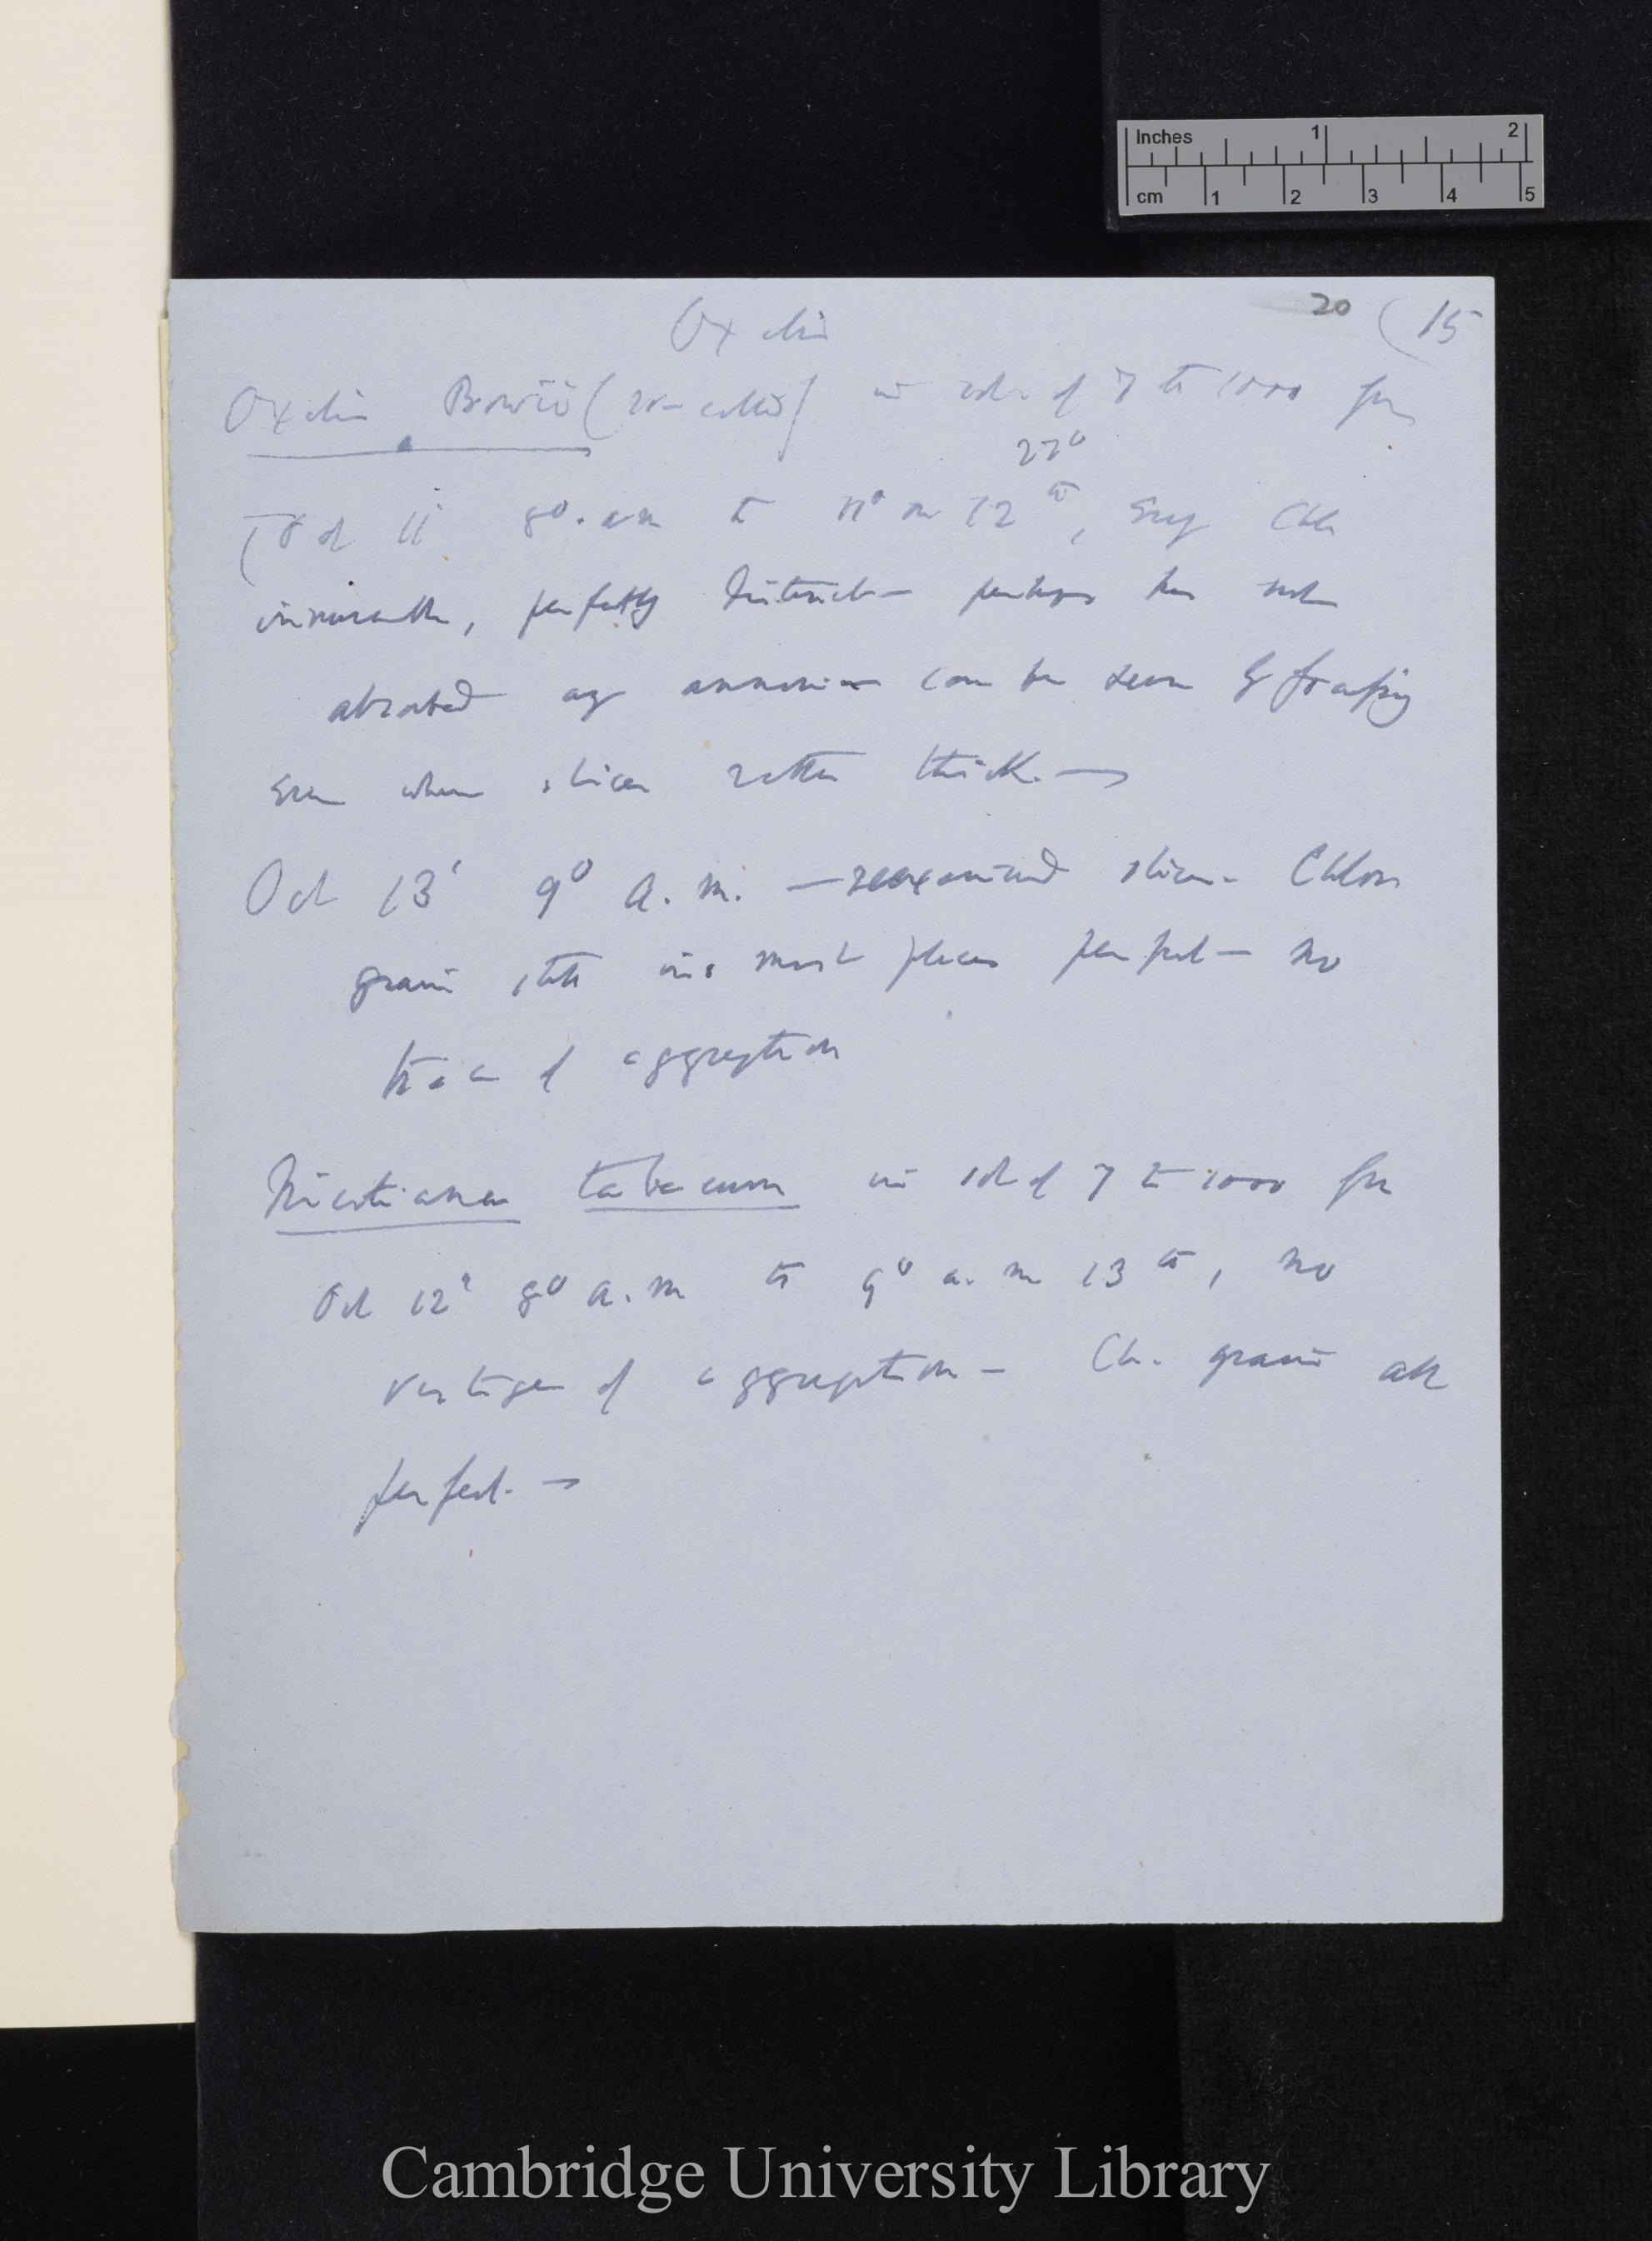 Inches 1 2
cm 1 2 3 4 5
20 (15
Oxalis
Oxalis Bowii ( ) in sol. of 7 to 1000 from
27°
(Oct 11' 8°. a.m to 11° on 12th, Every Chl
, perfectly distinct — perhaps has not
absorbed any ammonia can be seen by
even when slices rather thick. —
Oct 13' 9° a. m. — reexamined slices. Chloro
grains still in most places perfect — no
trace of aggregation
Nicotiana tabacum in sol of 7 to 1000 from
Oct 12' 8° a. m to 9° a. m 13th, no
vestige of aggregation — Ch. grains all
perfect. —
Cambridge University Library